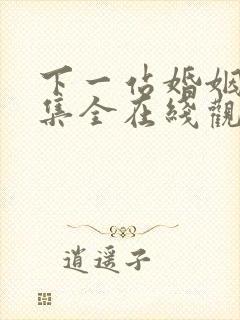 下一站婚姻
集全在綫觀
逍遥子